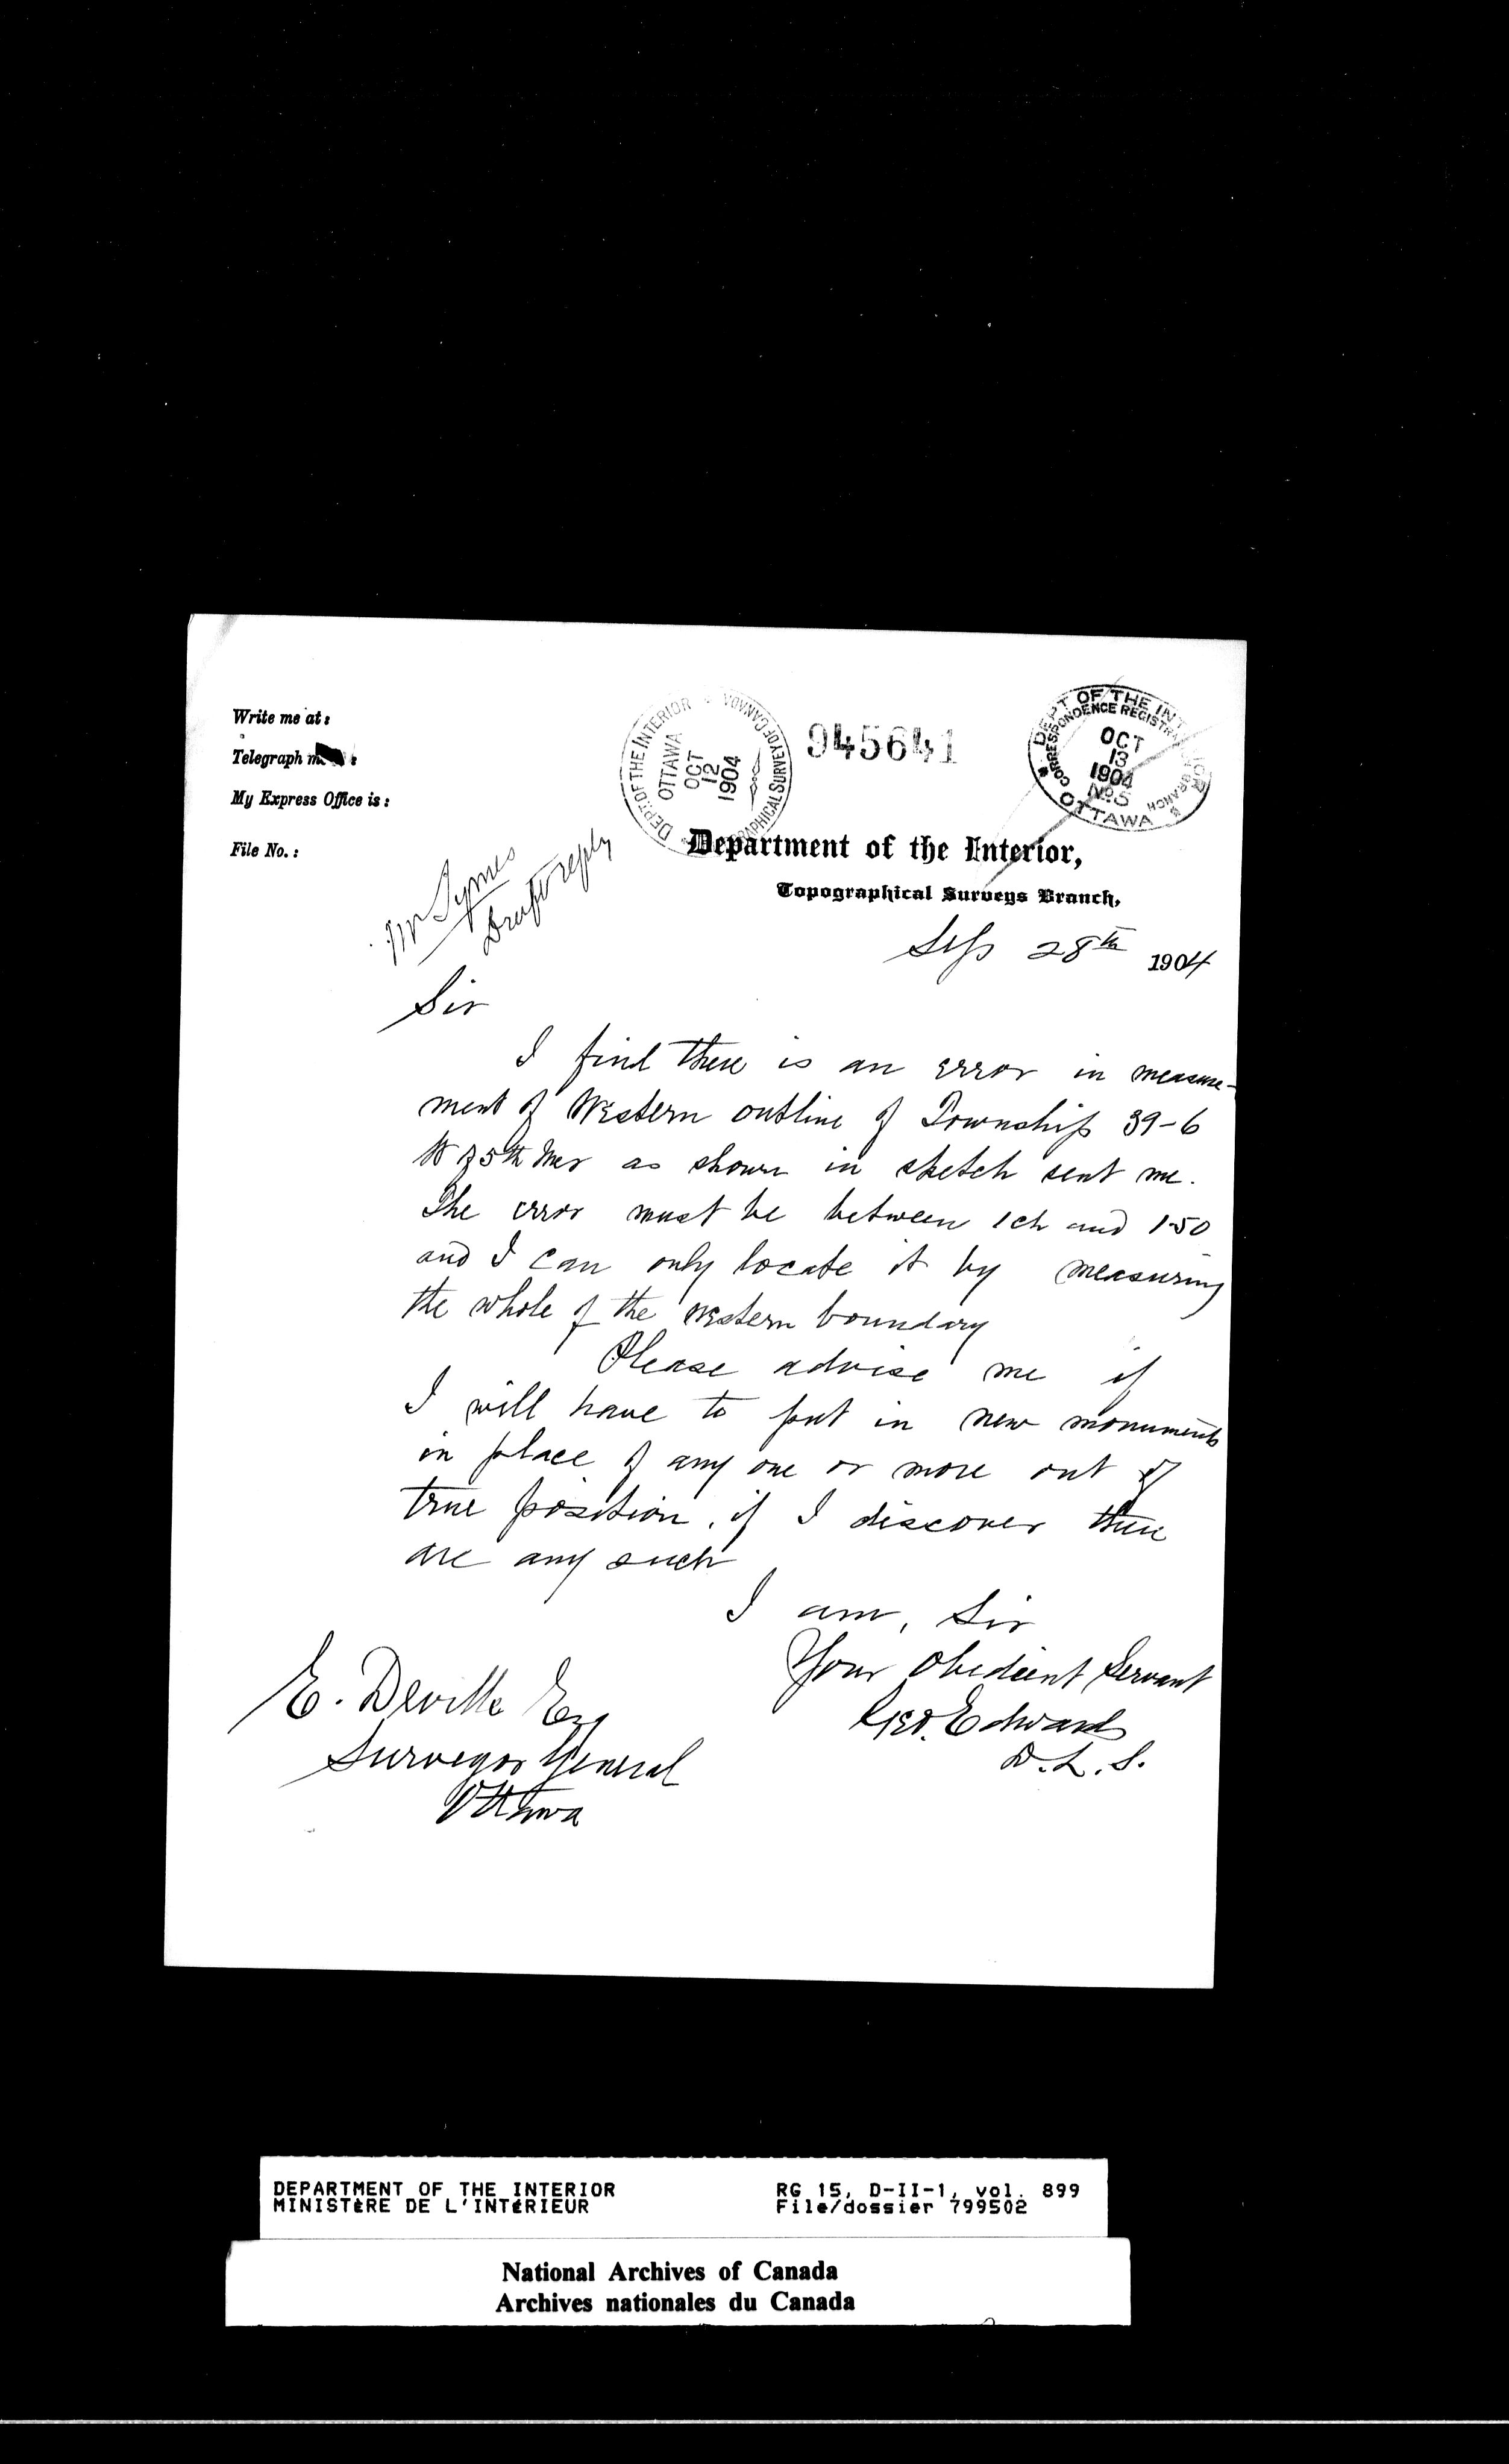 Write me at:
Telegraph me
My Express Office is:
File No.:
DEPT. OF THE INTERIOR
OTTAWA
OCT
12
1904
TOPOGRAPHICAL SURVEY OF CANADA
945641
DEPT OF THE INTERIOR
CORRESPONDENCE REGISTRATION BRANCH
OCT
13
1904
No. 5
OTTAWA
Mr Symes
Draft reply
Department of the Interior,
Topographical Surveys Branch,
Sep 28th 1904
Sir
I find there is an error in measure-
ment of Western outline of Township 39-6
W of 5th Mer as shown in sketch sent me.
The error must be between 1 ch and 1.50
and I can only locate it by measuring
the whole of the western boundary
Please advise me if
I will have to put in new monuments
in place of any one or more out of
true position, if I discover there
are any such
I am, Sir
Your Obedient Servant
Geo. Edwards
D. L. S.
E. Deville Esq
Surveyor General
Ottawa
DEPARTMENT OF THE INTERIOR
MINISTÈRE DE L'INTÉRIEUR
RG 15, D-II-1, vol. 899
File/dossier 799502
National Archives of Canada
Archives nationales du Canada